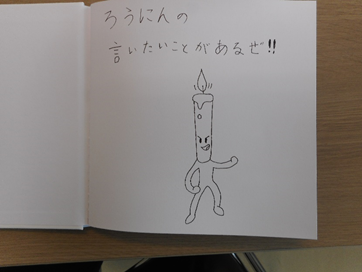 ろうにんの
言いたいことがあるぜ!!